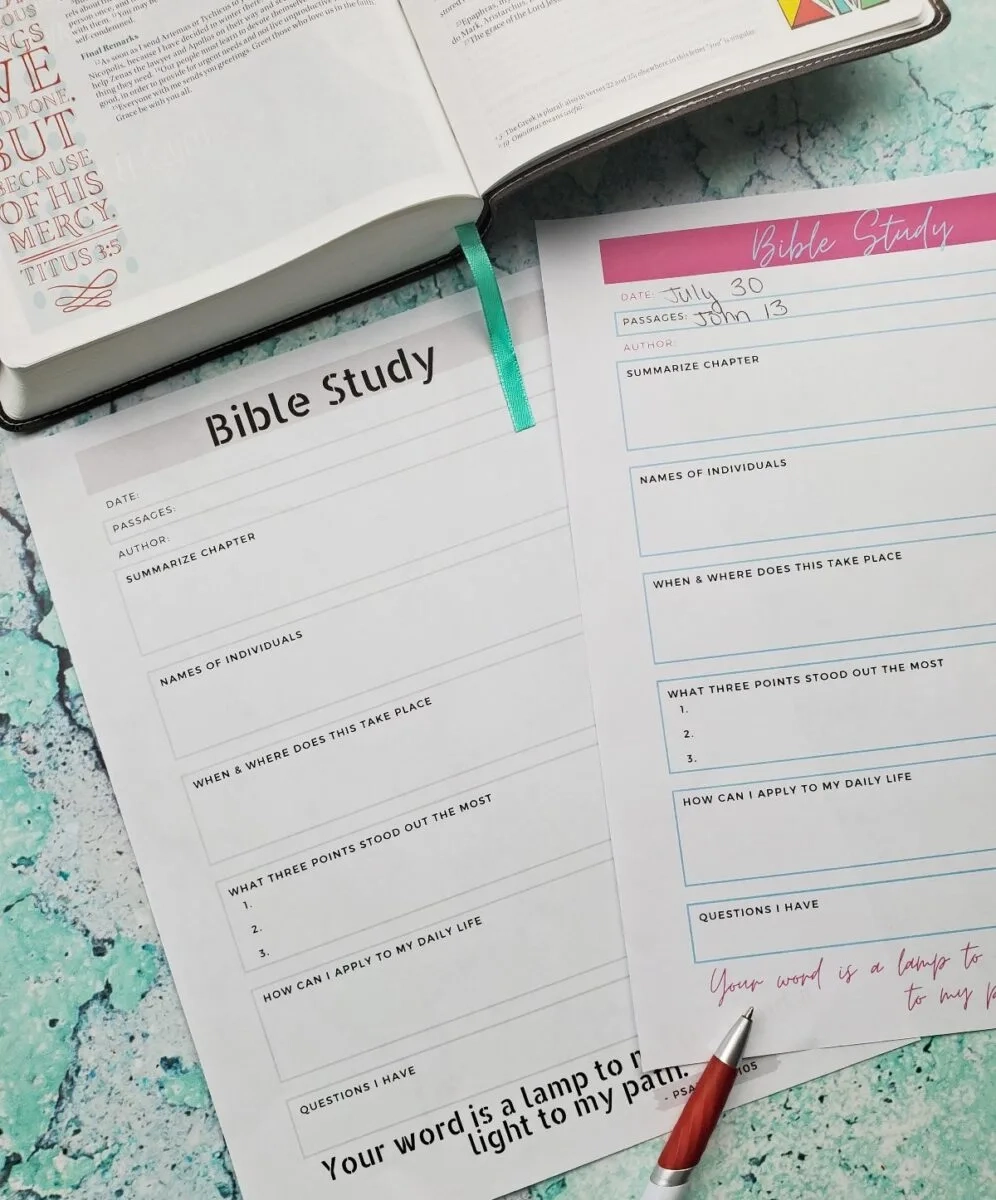 OUS
NGS
VE
D DONE,
BUT
BECAUSE
OF HIS
MERCY.
TITUS 3:5
person once, and
with them.
self-condemned.
Final Remarks
As soon as I send Artemas or Tychicus to
Nicopolis, because I have decided to winter there.
help Zenas the lawyer and Apollos on their way and see
thing they need. Our people must learn to devote themselves
good, in order to provide for urgent needs and not live unproductive
Everyone with me sends you greetings. Greet those who love us in the faith.
Grace be with you all.
Epaphras, my
do Mark, Aristarchus,
The grace of the Lord
The Greek is plural; also in verses 22 and 25; elsewhere in this letter "you" is singular.
Onesimus means useful.
Bible Study
DATE:
PASSAGES:
AUTHOR:
SUMMARIZE CHAPTER
NAMES OF INDIVIDUALS
WHEN & WHERE DOES THIS TAKE PLACE
WHAT THREE POINTS STOOD OUT THE MOST
1.
2.
3.
HOW CAN I APPLY TO MY DAILY LIFE
QUESTIONS I HAVE
Your word is a lamp to
light to my path.
Bible Study
DATE: July 30
PASSAGES: John 13
AUTHOR:
SUMMARIZE CHAPTER
NAMES OF INDIVIDUALS
WHEN & WHERE DOES THIS TAKE PLACE
WHAT THREE POINTS STOOD OUT THE MOST
1.
2.
3.
HOW CAN I APPLY TO MY DAILY LIFE
QUESTIONS I HAVE
Your word is a lamp to
to my